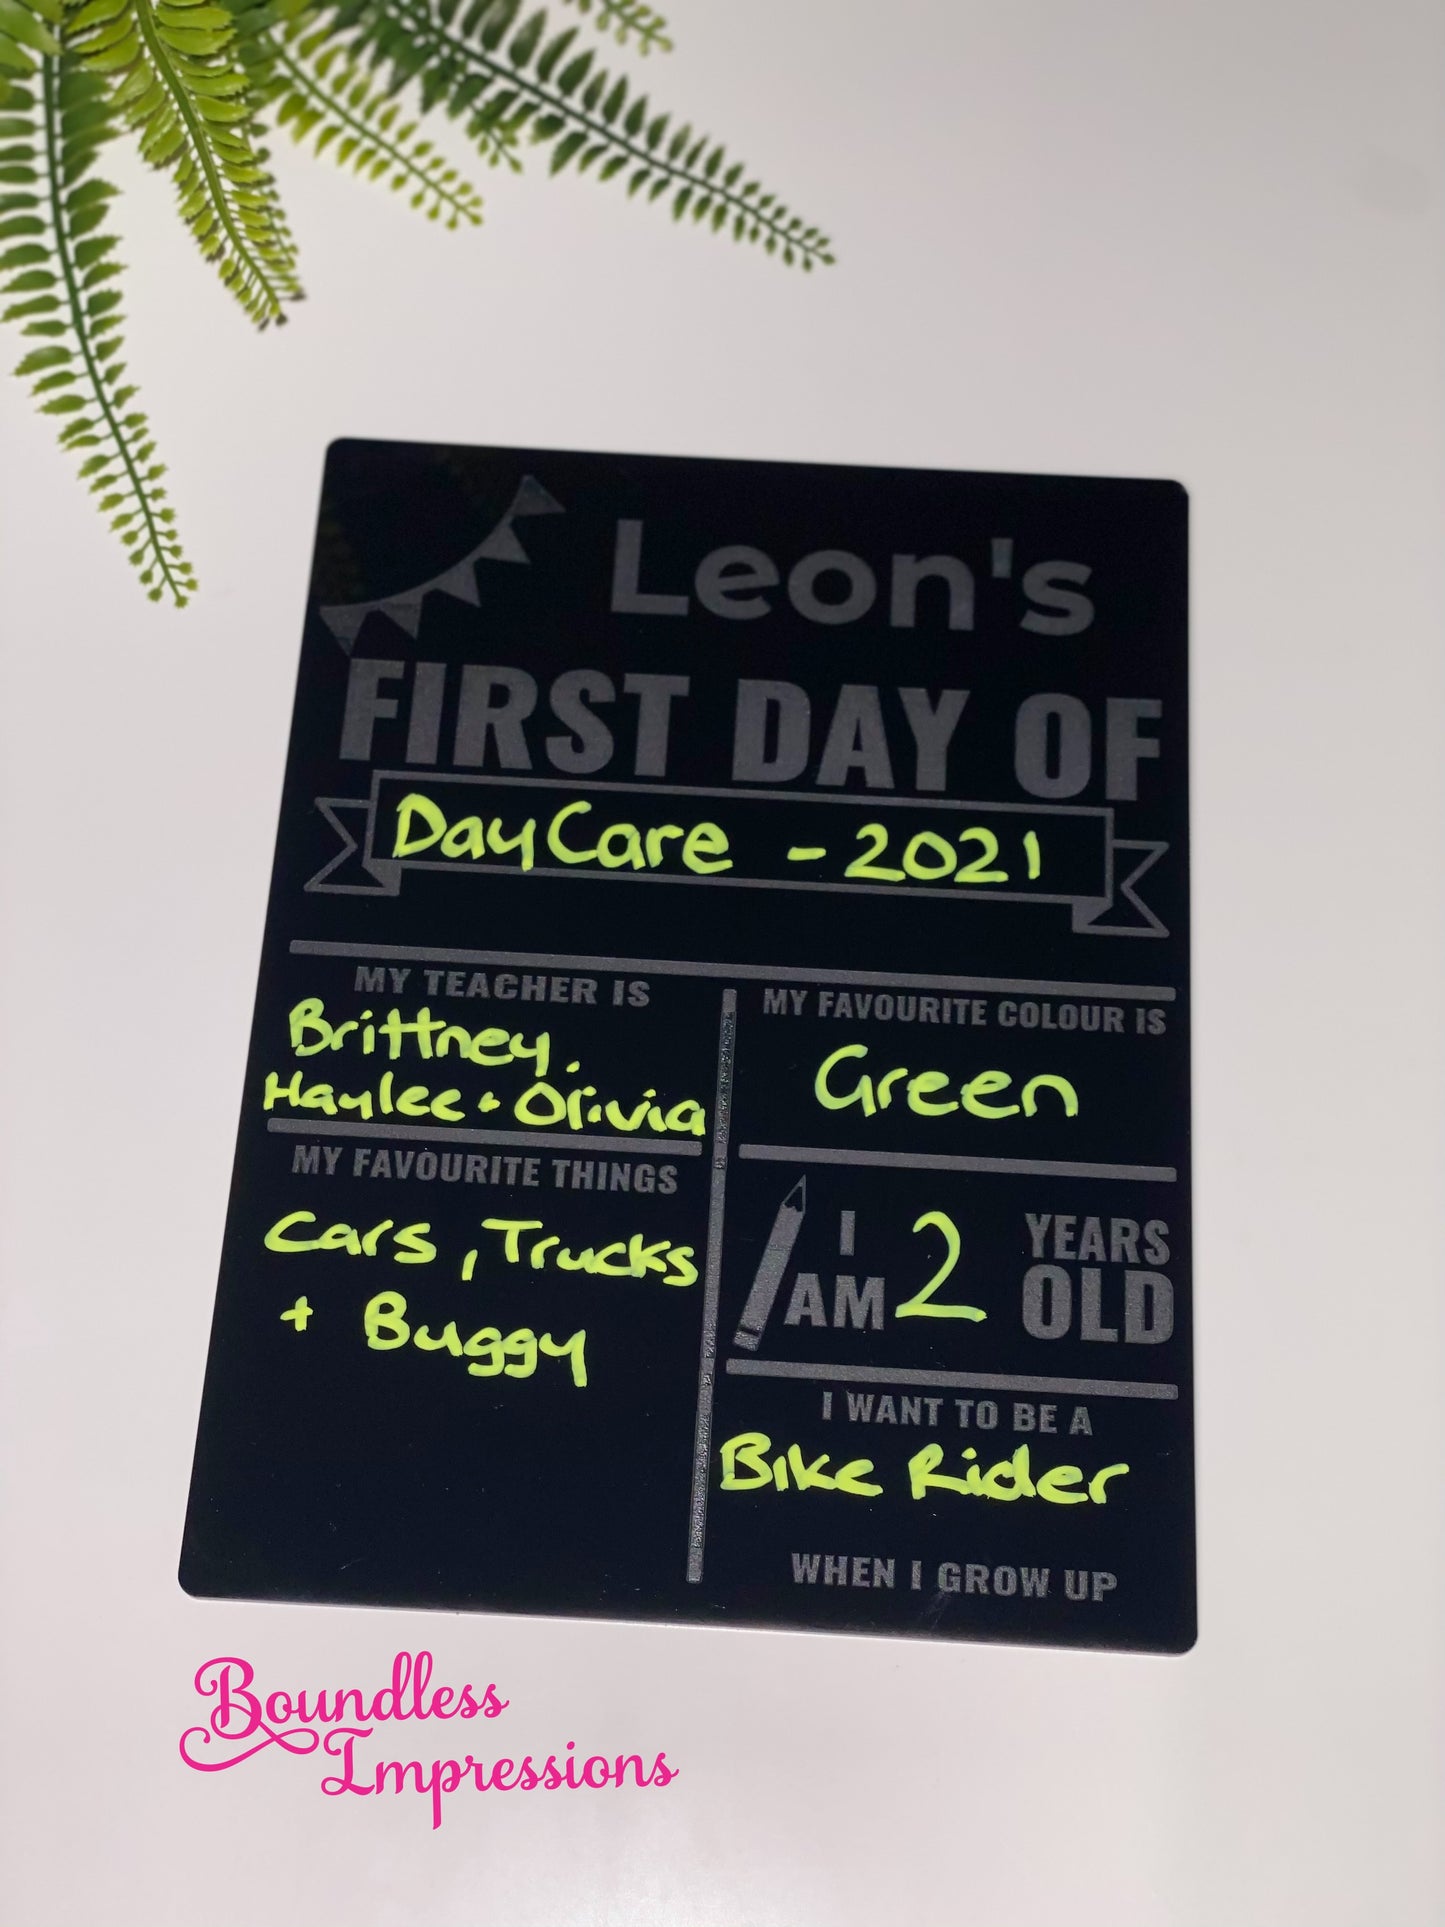 Leon's
FIRST DAY OF
DayCare - 2021
MY TEACHER IS
Brittney.
Haylee + Olivia
MY FAVOURITE THINGS
Cars, Trucks
+ Buggy
MY FAVOURITE COLOUR IS
Green
I AM 2 YEARS OLD
I WANT TO BE A
Bike Rider
WHEN I GROW UP
Boundless
Impressions